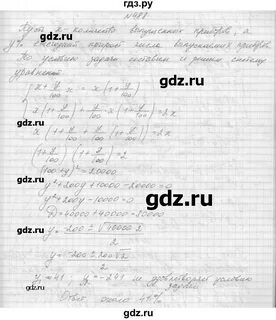 гдз.ру
№ 488
Пусть x количество выпускаемых приборов, а
y% – ежегодный прирост числа выпускаемых приборов.
По условию задачи составим и решим систему
уравнений
x + y/100 x = x(1 + y/100)
x(1 + y/100) + y/100 x(1 + y/100) = 2x
x(1 + y/100)(1 + y/100) = 2x
(1 + y/100)(1 + y/100) = 2
(100+y)² = 20000
y² + 200y + 10000 - 20000 = 0
y² + 200y - 10000 = 0
D = 40000 + 40000 = 80000
y = -200 ± √80000 / 2
y = -200 ± 200√2 / 2
y₁ ≈ 41; y₂ = -241 не удовлетворяет условию
задачи
Ответ: около 41%
gdz.ru
gdz.ru
gdz.ru
gdz.ru
gdz.ru
gdz.ru
gdz.ru
gdz.ru